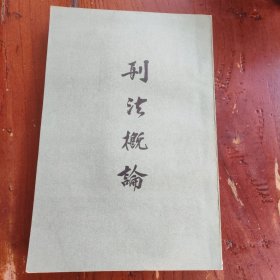 刑法概論